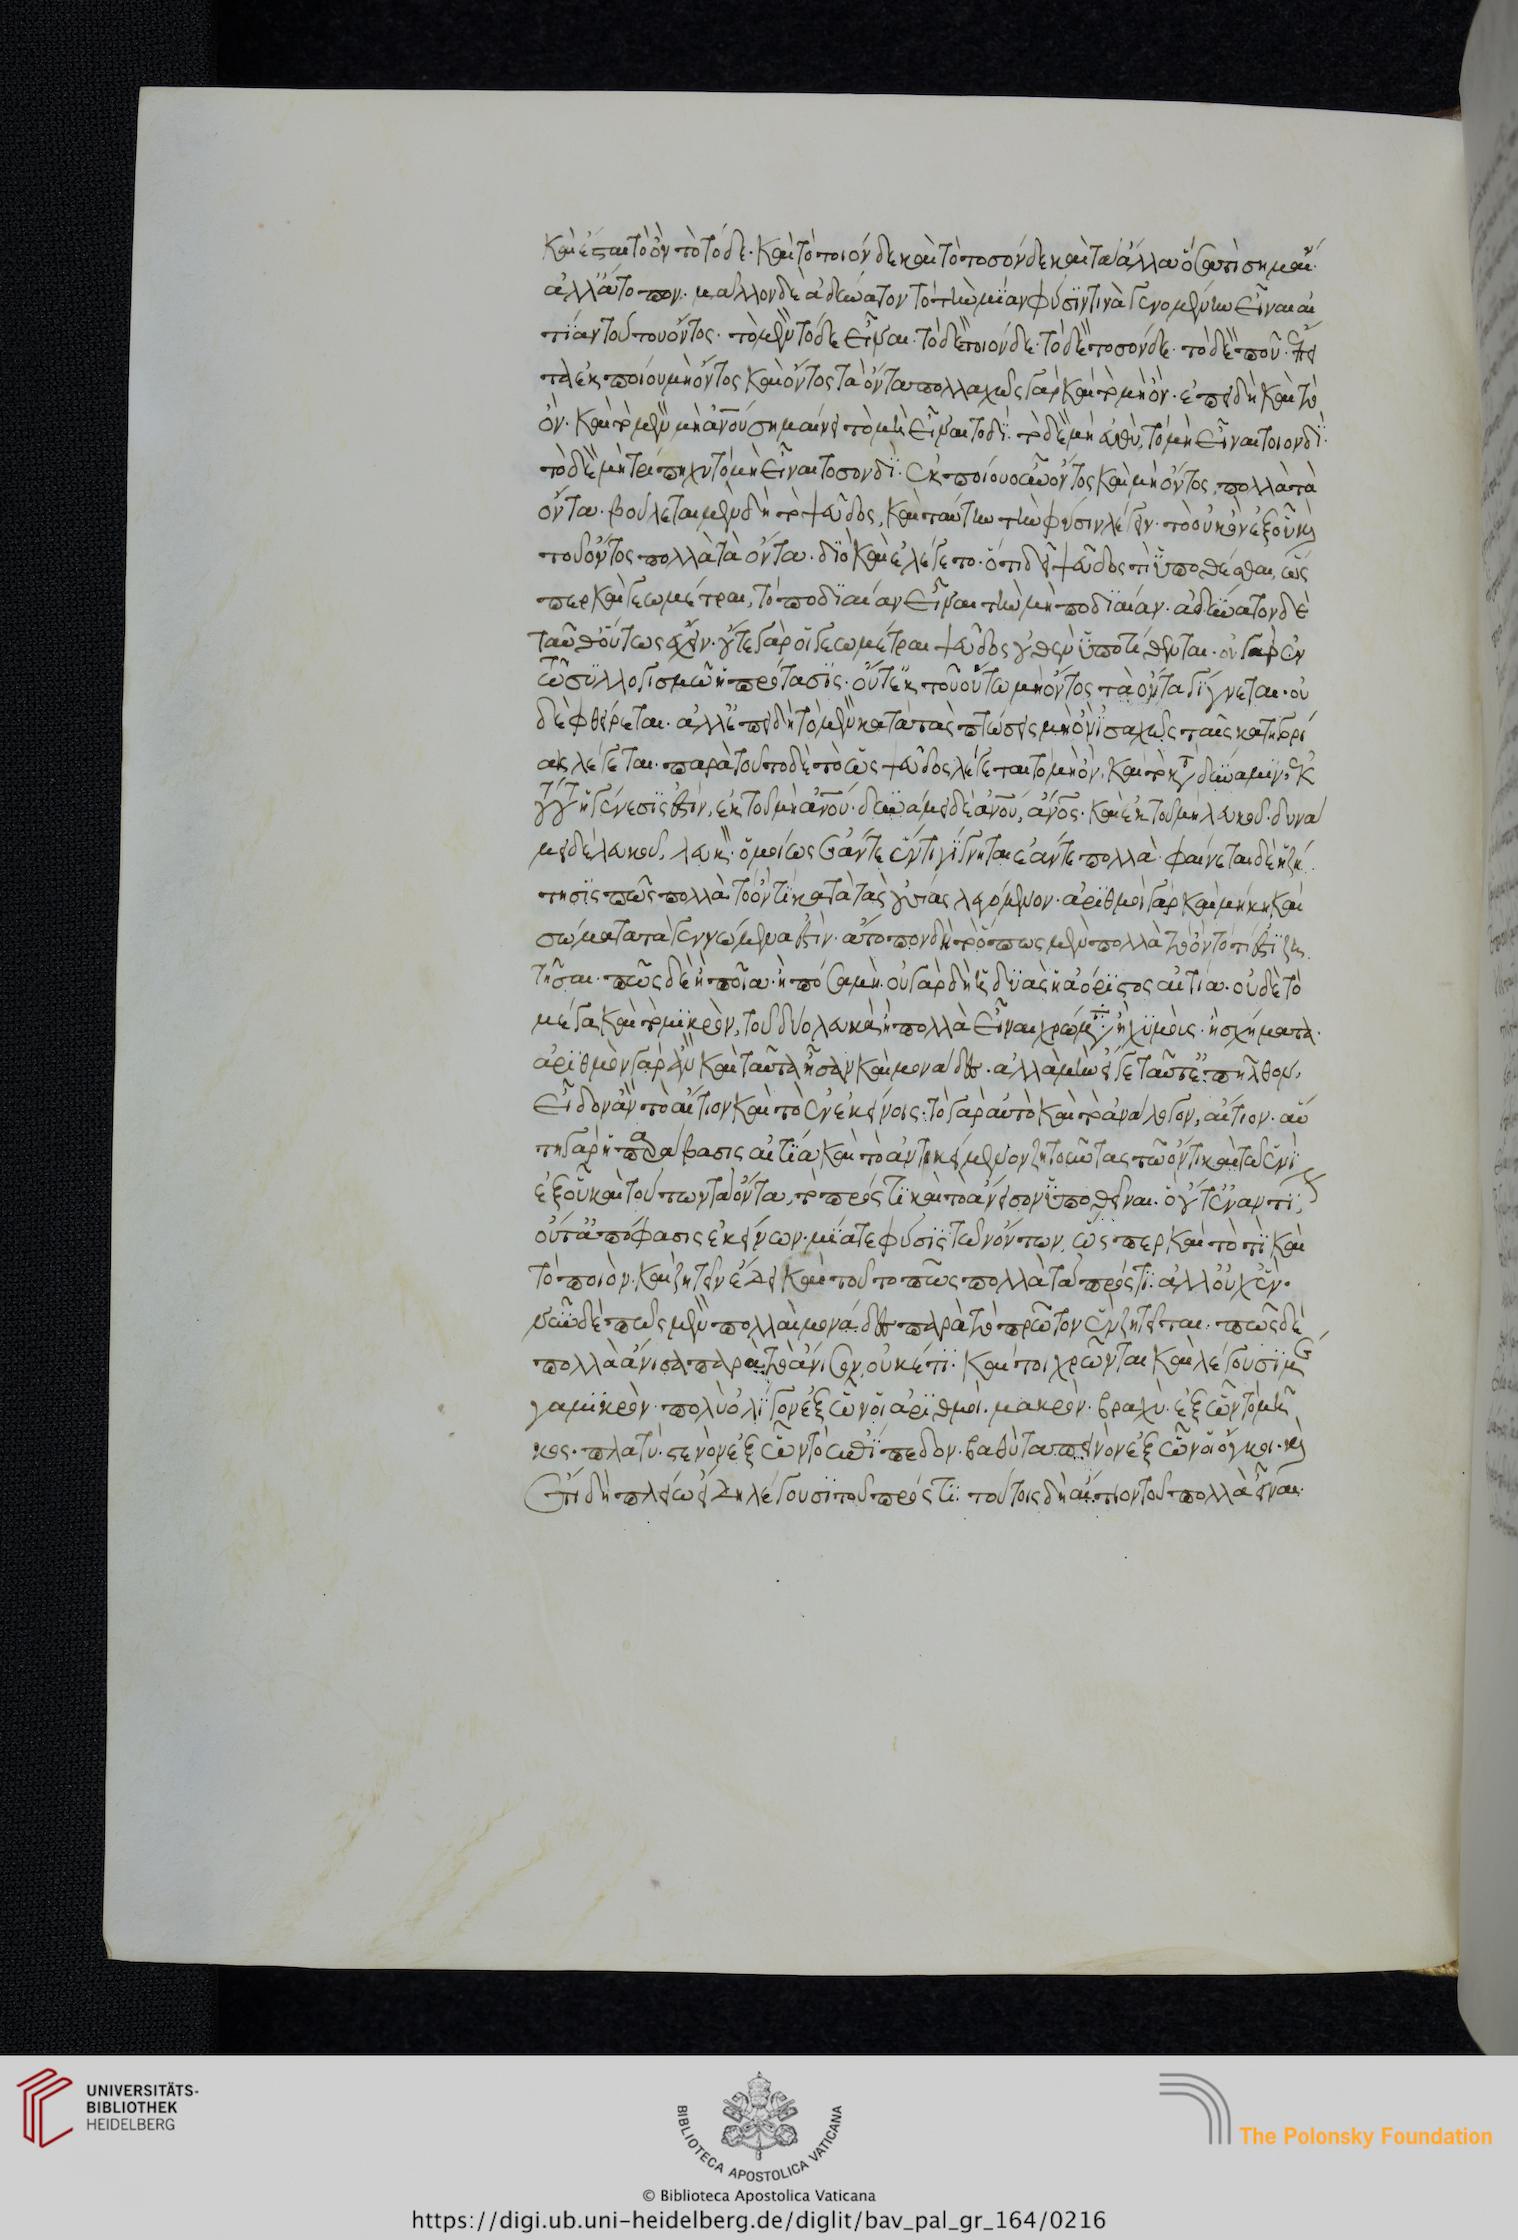 καὶ ἔσται τὸ ὂν τὸ τόδε· καὶ τὸ ποιόνδε καὶ τὸ ποσόνδε καὶ τὰ ἄλλα ὅσα τὶ σημαίν
ἀλλ' ἄτοπον· μᾶλλον δὲ ἀδύνατον τὸ τὴν μίαν φύσιν τινὰ γενομένην εἶναι αἰ
τίαν τοῦ του ὄντος· τὸ μὲν τόδε εἶναι· τὸ δὲ ποιόνδε· τὸ δὲ ποσόνδε· τὸ δὲ ποῦ· ἔπει
τα ἐκ ποίου μὴ ὄντος καὶ ὄντος τὰ ὄντα πολλαχῶς γὰρ καὶ τὸ μὴ ὄν· ἐπειδὴ καὶ τὸ
ὄν· καὶ τὸ μὲν μὴ ἄνου σημαίνει τὸ μὴ εἶναι τοδί· τὸ δὲ μὴ εὐθὺ, τὸ μὴ εἶναι τοιονδί·
τὸ δὲ μὴ τρίπηχυ τὸ μὴ εἶναι τοσονδί· ἐκ ποίου οὖν ὄντος καὶ μὴ ὄντος, πολλὰ τὰ
ὄντα· βούλεται μὲν δὴ τὸ ψεῦδος, καὶ ταύτην τὴν φύσιν λέγειν· τὸ οὐκ ὂν ἐξ οὗ καὶ
τοῦ ὄντος πολλὰ τὰ ὄντα· διὸ καὶ ἐλέγετο· ὅτι δεῖ ψεῦδος τι ὑποθέσθαι, ὥς
περ καὶ γεωμέτραι, τὸ ποδιαίαν εἶναι τὴν μὴ ποδιαίαν· ἀδύνατον δὲ
ταῦθ' οὕτως ἔχειν· οὔτε γὰρ οἱ γεωμέτραι ψεῦδος οὐθὲν ὑποτίθενται· οὐ γὰρ ἐν
τῶ συλλογισμῶ ἡ πρότασις· οὔτε ἐκ τοῦ οὕτω μὴ ὄντος τὰ ὄντα γίγνεται· οὐ
δὲ φθείρεται· ἀλλ' ἐπειδὴ τὸ μὲν κατὰ τὰς πτώσεις μὴ ὂν ἰσαχῶς ταῖς κατηγορί
αις λέγεται· παρὰ τοῦτο δὲ τὸ ὡς ψεῦδος λέγεται τὸ μὴ ὄν· καὶ τὸ κατὰ δύναμιν· ἐκ
τούτου ἡ γένεσις ἐστίν, ἐκ τοῦ μὴ ἀνου· δυνάμει δὲ ἀνου, ἄνος· καὶ ἐκ τοῦ μὴ λευκοῦ· δυνά
μει δὲ λευκοῦ, λευκόν· ὁμοίως ἐάν τε ἕν τι γίγνηται ἐάν τε πολλά· φαίνεται δὲ ἡ ζή
τησις πῶς πολλὰ τὸ ὂν τὶ κατὰ τὰς οὐσίας λεγόμενον· ἀριθμοὶ γὰρ καὶ μήκη καὶ
σώματα τὰ γεννώμενα ἐστὶν· ἄτοπον δὴ τὸ ὅπως μὲν πολλὰ τὸ ὂν τὸ τί ἐστι ζη
τῆσαι· πῶς δὲ ἢ ποῖα· ἢ πόσα μή· οὐ γὰρ δὴ ἡ δυὰς ἡ ἀόριστος αἰτία· οὐδὲ τὸ
μέγα καὶ τὸ μικρὸν, τοῦ δύο λευκὰ ἢ πολλὰ εἶναι χρώματα ἢ χυμοὺς· ἢ σχήματα·
ἀριθμοὶ γὰρ ἂν καὶ ταῦτα ἦσαν καὶ μονάδες· ἀλλὰ μὴν εἴ γε ταῦτ' ἐπῆλθον,
εἶδον ἂν τὸ αἴτιον καὶ τὸ ἐν ἐκείνοις· τὸ γὰρ αὐτὸ καὶ τὸ ἀνάλογον, αἴτιον· αὕ
τη γὰρ ἡ παράβασις αἰτία καὶ τὸ ἀντικείμενον ζητοῦντας τῶ ὄντι καὶ τῶ ἑνὶ
ἐξ οὗ καὶ τούτων τὰ ὄντα, τὸ πρός τι καὶ τὸ ἄνισον ὑποθεῖναι· ὃ οὔτ' ἐναντί
ον οὔτ' ἀπόφασις ἐκείνων· μία τε φύσις τῶν ὄντων, ὥσπερ καὶ τὸ τὶ καὶ
τὸ ποιόν· καὶ ζητεῖν ἔδει καὶ τοῦτο πῶς πολλὰ τὰ πρός τι· ἀλλ' οὐχ ἕν·
νῦν δὲ πῶς μὲν πολλαὶ μονάδες παρὰ τὸ πρῶτον ἓν ζητεῖται· πῶς δὲ
πολλὰ ἄνισα παρὰ τὸ ἄνισον, οὐκέτι· καί τοι χρῶνται καὶ λέγουσι μέ
γα μικρὸν· πολὺ ὀλίγον ἐξ ὧν οἱ ἀριθμοί· μακρὸν· βραχὺ· ἐξ ὧν τὸ μῆ
κος· πλατὺ· στενὸν ἐξ ὧν τὸ ἐπίπεδον· βαθὺ ταπεινὸν ἐξ ὧν οἱ ὄγκοι· καὶ
ἔτι δὴ πλείω εἴδη λέγουσι τοῦ πρός τι· τούτοις δὴ αἴτιον τοῦ πολλὰ εἶναι·
UNIVERSITÄTS-
BIBLIOTHEK
HEIDELBERG
BIBLIOTECA APOSTOLICA VATICANA
The Polonsky Foundation
© Biblioteca Apostolica Vaticana
https://digi.ub.uni-heidelberg.de/diglit/bav_pal_gr_164/0216